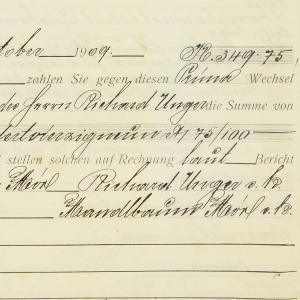 tober 1909. K. 349.75,
zahlen Sie gegen diesen Prima Wechsel
des Herrn Richard Unger die Summe von
dertvierzigneun Kr 75/100
stellen solchen auf Rechnung laut Bericht
Mórl Richard Unger e. h.
Mandlbaum Mórl e. h.